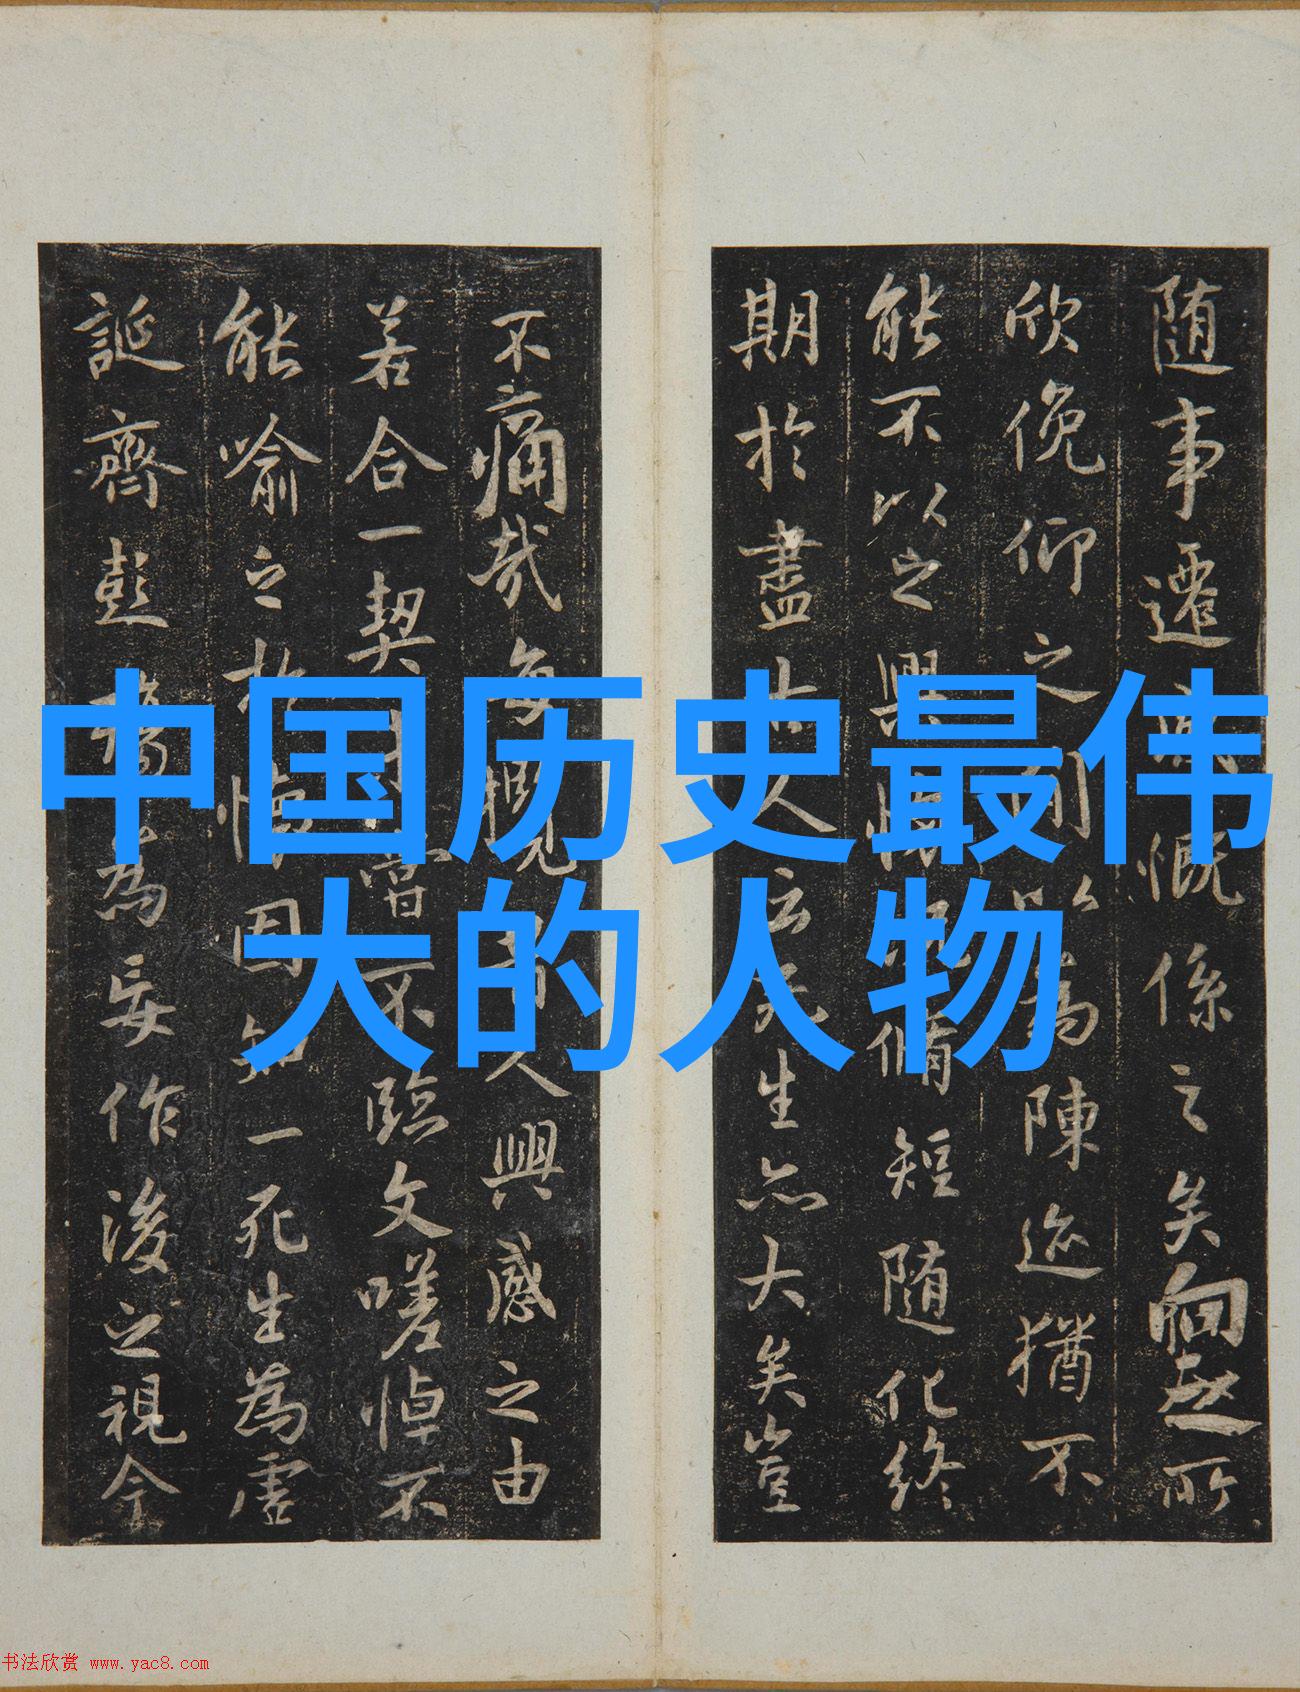 中国历史最伟
大的人物
随事遷感慨係之矣向之所
欣俛仰之閒以為陳迹猶不
能不以之興懷況脩短随化終
期於盡古人云死生亦大矣豈
不痛哉每攬昔人興感之由
若合一契未嘗不臨文嗟悼不
能喻之於懷固知一死生為虛
誕齊彭殤為妄作後之視今
书法欣赏 www.yac8.com